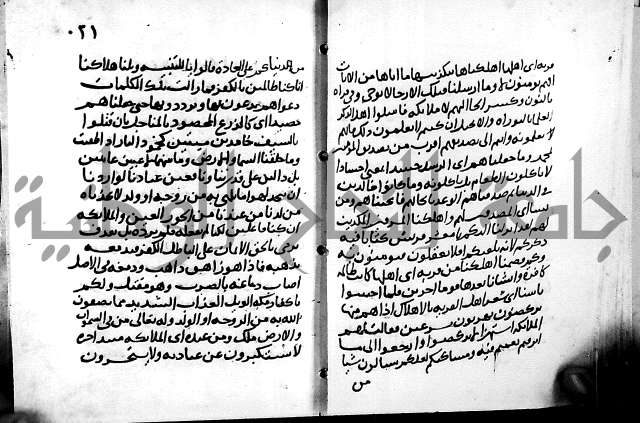 قرية اى اهلها اهلكناها بتكذيبها ما اتاها من الآيات
افهم يؤمنون لا وما ارسلنا قبلك الا رجالا يوحى وفى قراءة
بالنون وكسر الحا اليهم لا ملائكة فاسئلوا اهل الذكر
العلما بالتوراة والانجيل ان كنتم لا تعلمون ذلك فانهم
يعلمونه وانتم الى تصديقهم اقرب من تصديق المؤمنين
بمحمد وما جعلناهم اى الرسل جسدا بمعنى اجسادا
لا ياكلون الطعام بل ياكلونه وما كانوا خالدين
فى الدنيا ثم صدقناهم الوعد بانجائهم فانجيناهم ومن
نشاء اى المصدقين لهم واهلكنا المسرفين المكذبين
لهم لقد انزلنا اليكم يا معشر قريش كتابا فيه
ذكركم لانه بلغتكم افلا تعقلون فتؤمنون به
وكم قصمنا اهلكنا من قرية اى اهلها كانت ظالمة
كافرة وانشانا بعدها قوما اخرين فلما احسوا
باسنا اى شعر اهل القرية بالاهلاك اذا هم منها
يركضون يهربون مسرعين فقالت لهم
الملائكة استهزاء لا تركضوا وارجعوا الى ما
اترفتم نعمتم فيه ومساكنكم لعلكم تسالون شيا
من
٠٢١
من دنياكم على العادة قالوا يا للتنبيه ويلنا هلاكنا
انا كنا ظالمين بالكفر فما زالت تلك الكلمات
دعواهم يدعون بها ويرددونها حتى جعلناهم
حصيدا اى كالزرع المحصود بالمناجل بان قتلوا
بالسيف خامدين ميتين كخمود النار اذا طفئت
وما خلقنا السما والارض وما بينهما لاعبين عابثين
بل دالين على قدرتنا ونافعين عبادنا لو اردنا
ان نتخذ لهوا ما يلهى به من زوجة او ولد لاتخذناه
من لدنا من عندنا من الحور العين والملائكة
ان كنا فاعلين لكنا لم نفعله فلم نرده بل نقذف
نرمى بالحق الايمان على الباطل الكفر فيدمغه
يذهبه فاذا هو زاهق ذاهب ودمغه فى الاصل
اصاب دماغه بالضرب وهو مقتل ولكم
يا كفار مكة الويل العذاب الشديد مما تصفون
الله به من الزوجة او الولد وله تعالى من فى السموات
والارض ملكا ومن عنده اى الملائكة مبتدا خبره
لا يستكبرون عن عبادته ولا يستحسرون
جامعة الملك سعود